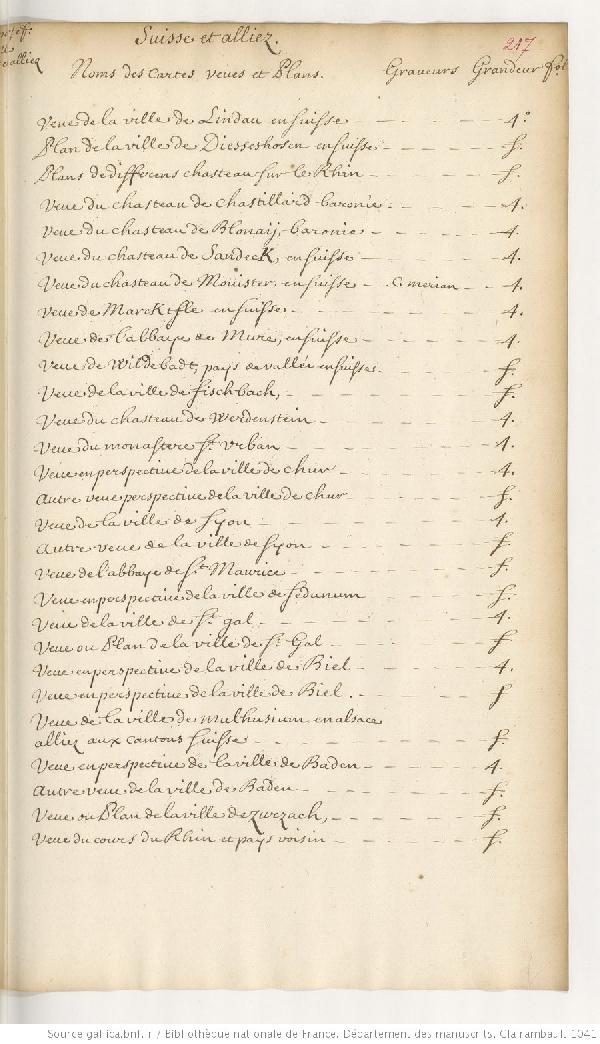 Suisse et alliez.
217
Noms des Cartes, veues et Plans. Graveurs Grandeur fol
Veue de la ville de Lindau en suisse 4.°
Plan de la ville de Diesseshosen en suisse f.
Plans de differens chasteau sur le Rhin f.
Veue du chasteau de Chastillard baronie 4.
Veue du chasteau de Blonaij, baronie 4.
Veue du chasteau de Sandeck, en suisse 4.
Veue du chasteau de Moüister, en suisse C. merian 4.
Veue de Marcktfle en suisse 4.
Veue de l'abbaye de Mure, en suisse 4.
Veue de Wildebadt, pays de vallée en suisse. f.
Veue de la ville de fischbach, f.
Veue du chasteau de Werdenstein 4.
Veue du monastere S.t Urban 4.
Veüe en perspective de la ville de Chur 4.
autre veue perspective de la ville de Chur f.
Veue de la ville de Syon 4.
autre veue de la ville de Syon f.
Veue de l'abbaye de S.t Maurice f.
Veue en perspective de la ville de Sedunum f.
Veue de la ville de S.t gal 4.
Veue ou Plan de la ville de S.t Gal f
Veue en perspective de la ville de Biel 4.
Veue en perspective de la ville de Biel. f
Veue de la ville de mulhusium en alsace
alliez aux cantons suisse f.
Veue en perspective de la ville de Baden 4.
autre veue de la ville de Baden f.
Veue ou Plan de la ville de zurzach, f.
Veue du cours du Rhin et pays voisin f.
Source gallica.bnf.fr / Bibliothèque nationale de France. Département des manuscrits. Clairambault 1041